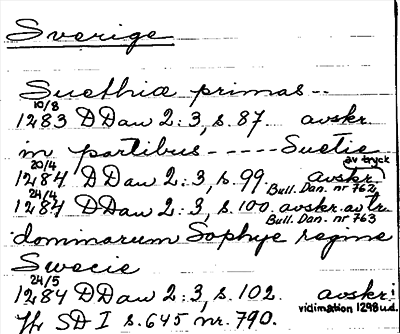 Sverige
Suethiæ primas --
10/8
1283 DDan 2:3, s. 87. avskr.
in partibus ----- Suetie
20/4 av tryck
1284 DDan 2:3, s. 99. avskr.
Bull. Dan. nr 762
24/4
1284 DDan 2:3, s. 100. avskr. av tr.
Bull. Dan. nr 763
dominarum Sophye regine
Swecie
24/5
1284 DDan 2:3, s. 102. avskr.
vidimation 1298 u.d.
SD I s. 645 nr. 790.